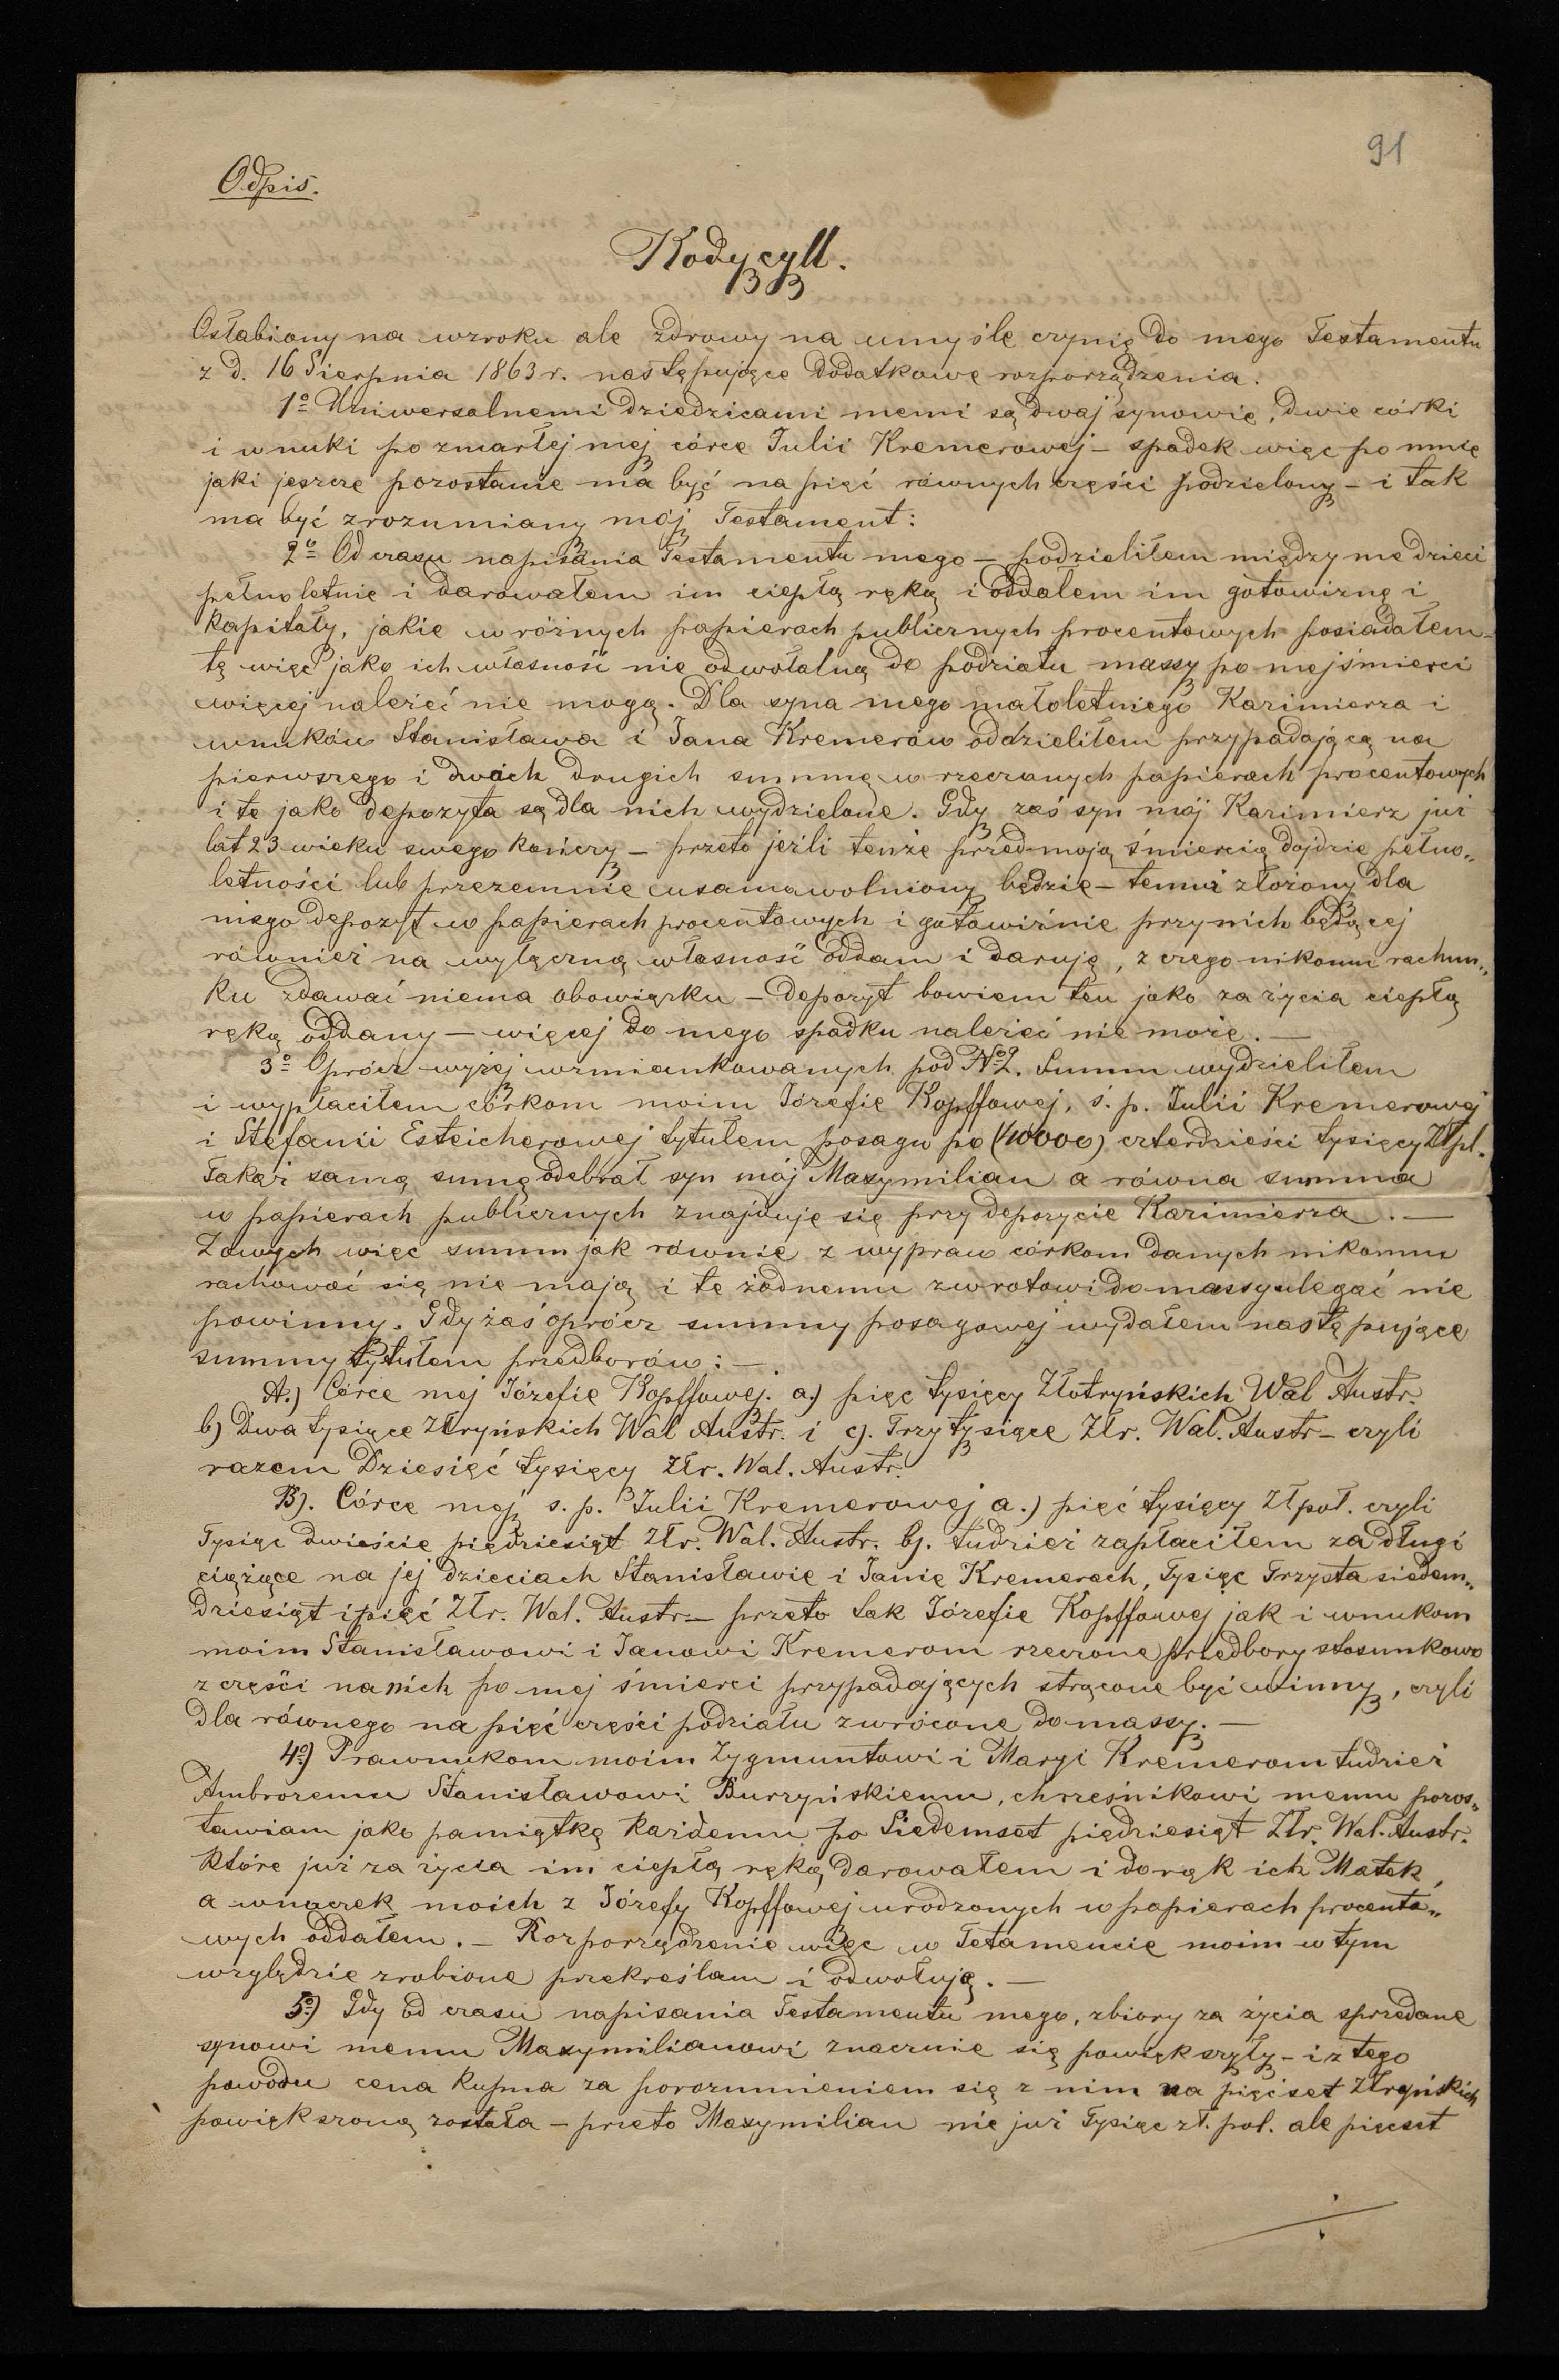 91
Odpis.
Kodycyll.
Osłabiony na wzroku ale zdrowy na umyśle czynię do mego Testamentu
z d. 16 Sierpnia 1863 r. następujące dodatkowe rozporządzenia.
1o Uniwersalnemi dziedzicami memi są dwaj synowie, dwie córki
i wnuki po zmarłej mej córce Julii Kremerowej – spadek więc po mnie
jaki jeszcze pozostanie ma być na pięć równych części podzielony – i tak
ma być zrozumiany mój Testament:
2o Od czasu napisania Testamentu mego – podzieliłem między me dzieci
pełnoletnie i darowałem im ciepłą ręką i oddałem im gotowiznę i
Kapitały, jakie w różnych papierach publicznych procentowych posiadałem –
te więc jako ich własność nie odwołalną do podziału massy po mej śmierci
więcej należeć nie mogą. Dla syna mego małoletniego Kazimierza i
wnuków Stanisława i Jana Kremerów oddzieliłem przypadającą na
pierwszego i dwóch drugich summę w rzeczonych papierach procentowych
i te jako depozyta są dla nich wydzielone. Gdy zaś syn mój Kazimierz już
lat 23 wieku swego kończy – przeto jeżli tenże przed moją śmiercią dojdzie pełno„
letności lub przezemnie usamowolniony będzie – temuż złożony dla
niego depozyt w papierach procentowych i gotowiźnie przy nich będącej
również na wyłączną własność oddam i daruję, z czego nikomu rachun„
ku zdawać niema obowiązku – depozyt bowiem ten jako za życia ciepłą
ręką oddany – więcej do mego spadku należeć nie może. —
3o Oprócz wyżej wzmiankowanych pod No 2. Summ wydzieliłem
i wypłaciłem córkom moim Józefie Kopffowej, ś. p. Julii Kremerowej
i Stefanii Esteicherowej tytułem posagu po (40000) czterdzieści tysięcy Złpl.
Takąż samą sumę odebrał syn mój Maxymilian a równa summa
w papierach publicznych znajduje się przy depozycie Kazimierza. —
Z owych więc summ jak równie z wypraw córkom danych nikomu
rachować się nie mają i te żadnemu zwrotowi do massy ulegać nie
powinny. Gdy zaś oprócz summy posagowej wydałem następujące
summy tytułem przedborów: —
A.) Córce mej Józefie Kopffowej. a.) pięć tysięcy Złotryńskich Wal Austr.
b) Dwa tysiące Złtryńskich Wal Austr. i c). Trzy tysiące Złr. Wal. Austr – czyli
razem Dziesięć tysięcy Złr. Wal. Austr.
B). Córce mej s. p. Julii Kremerowej a.) pięć tysięcy Zł pol. czyli
Tysiąc dwieście pięćdziesiąt Złr. Wal. Austr. b). tudzież zapłaciłem za długi
ciążące na jej dzieciach Stanisławie i Janie Kremerach, Tysiąc Trzysta siedem„
dziesiąt i pięć Złr. Wal. Austr. – przeto tak Józefie Kopffowej jak i wnukom
moim Stanisławowi i Janowi Kremerom rzeczone przedbory stosunkowo
z części na nich po mej śmierci przypadających strącone być winny, czyli
dla równego na pięć części podziału zwrócone do massy. —
4o) Prawnukom moim Zygmuntowi i Maryi Kremerom tudzież
Ambrozemu Stanisławowi Burzyńskiemu, chrześnikowi memu pozos„
tawiam jako pamiątkę każdemu po Siedemset pięćdziesiąt Złr. Wal. Austr.
które już za życia im ciepłą ręką darowałem i do rąk ich Matek,
a wnuczek moich z Józefy Kopffowej urodzonych w papierach procento„
wych oddałem. – Rozporządzenie więc w Tetamencie moim w tym
względzie zrobione przekreślam i odwołuję. —
5o) Gdy od czasu napisania Testamentu mego, zbiory za życia sprzedane
synowi memu Maxymilianowi znacznie się powiększyły – i z tego
powodu cena kupna za porozumieniem się z nim na pięćset Złryńskich
powiększoną została – przeto Maxymilian nie już Tysiąc zł. pol. ale pięcset